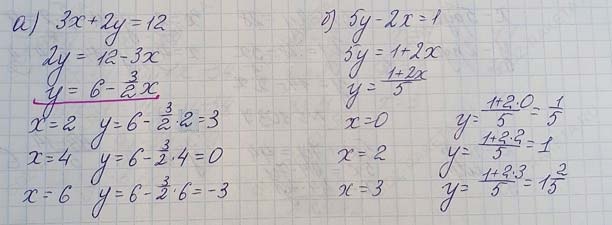 а) 3x+2y=12
2y = 12-3x
y = 6 - 3/2 x
x=2 y=6- 3/2 · 2 = 3
x=4 y=6- 3/2 · 4 = 0
x=6 y=6- 3/2 · 6 = -3
б) 5y-2x=1
5y=1+2x
y= (1+2x)/5
x=0 y= (1+2·0)/5 = 1/5
x=2 y= (1+2·2)/5 = 1
x=3 y= (1+2·3)/5 = 1 2/5